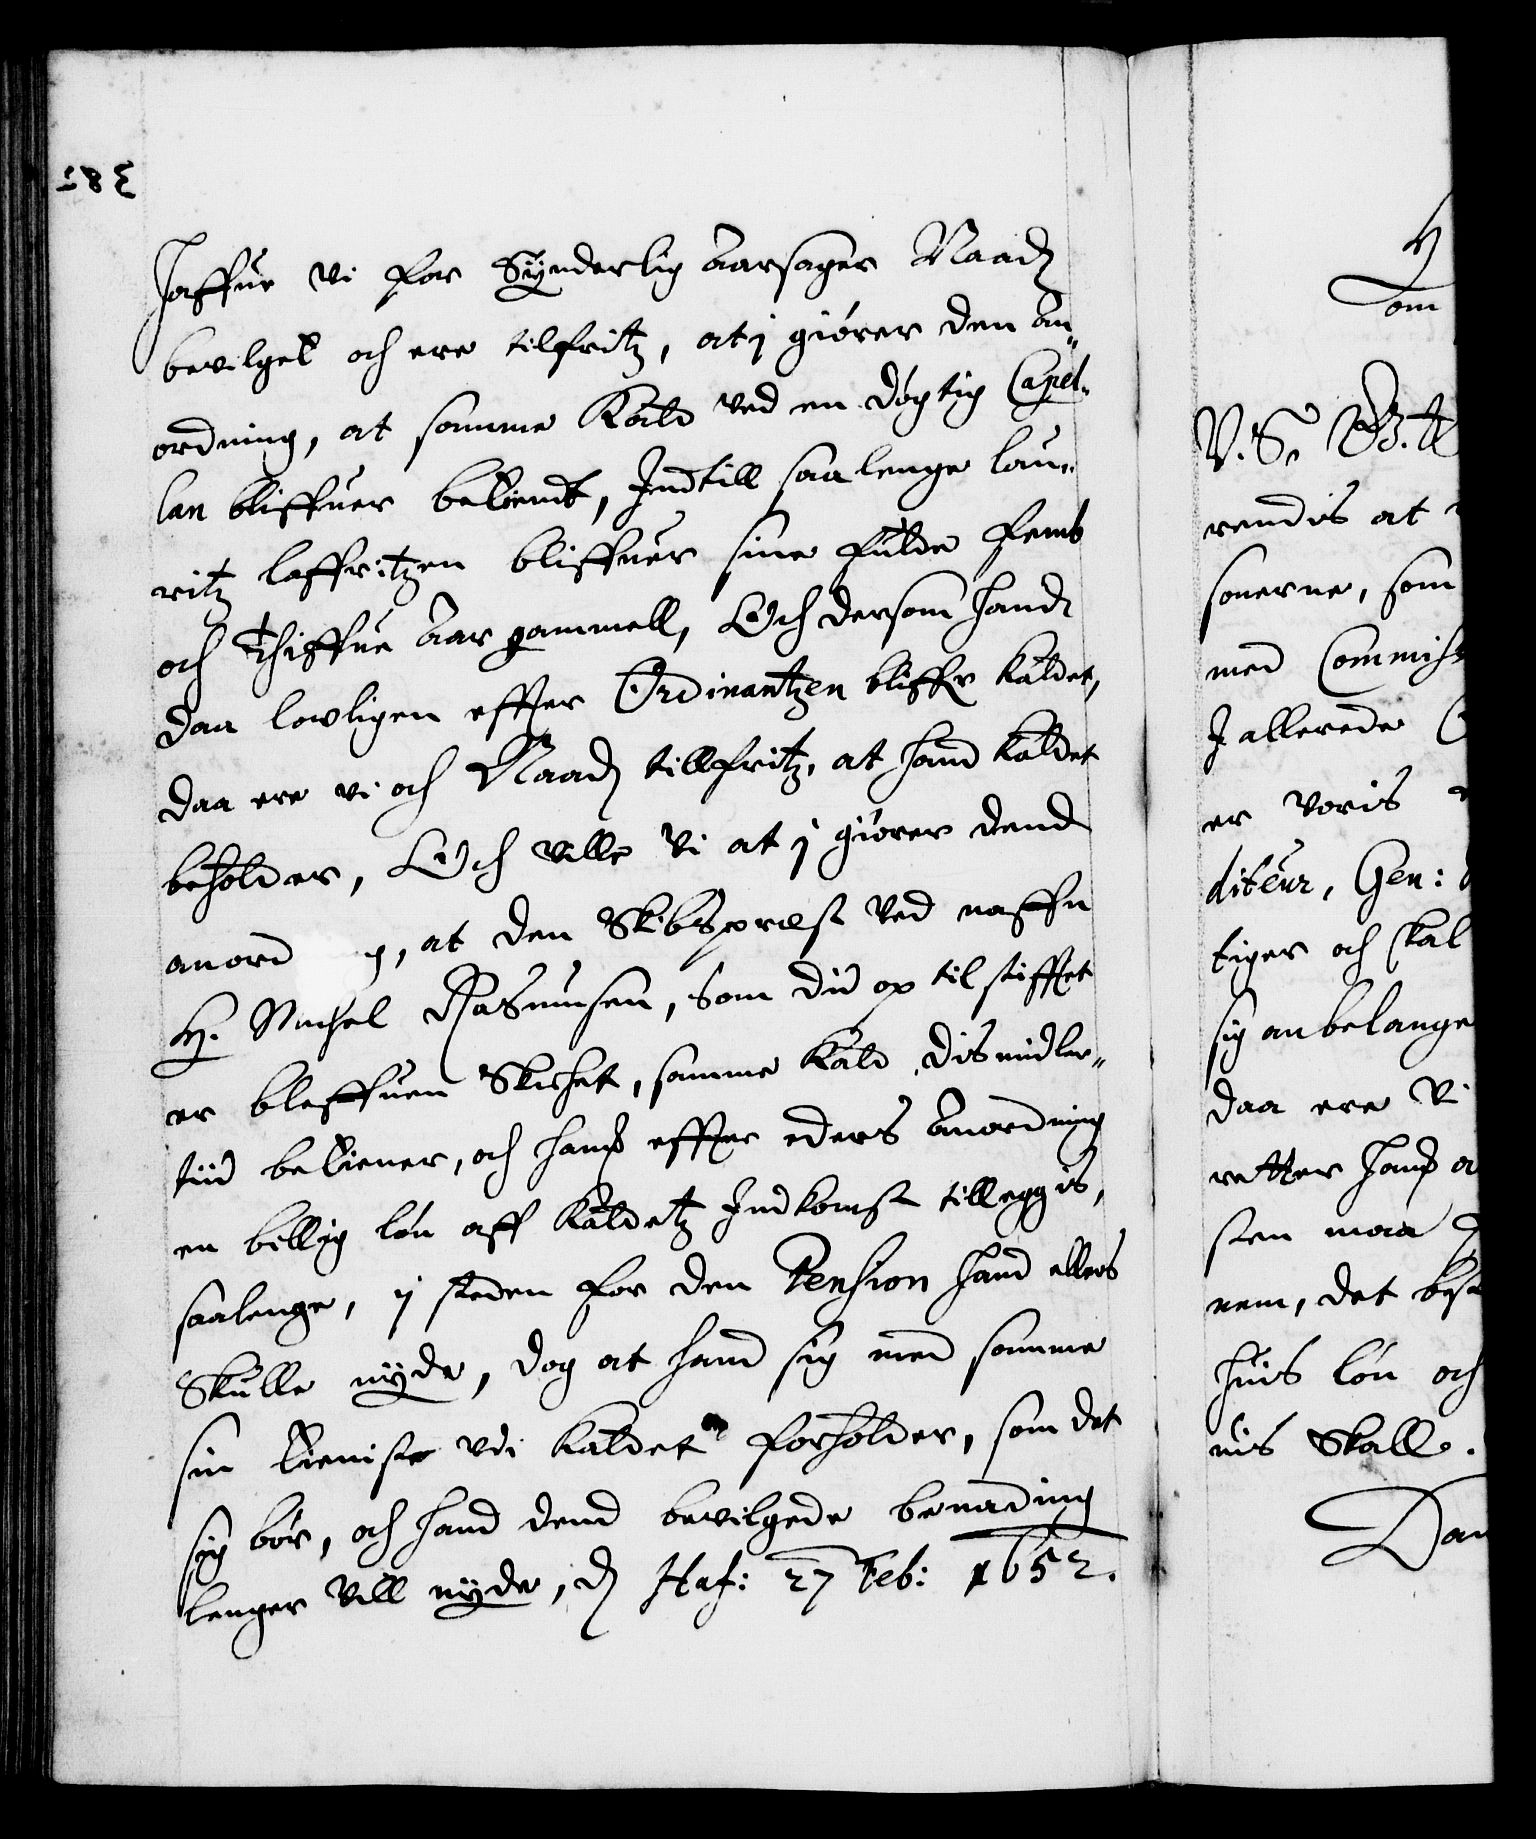 haffue vi for Synderlig Aarsager Naadt
bevilget och ere tilfritz, at j giører den an„
ordning, at samme Kald ved en døgtig Capel„
lan bliffuer betient, Indtill saa lenge lau„
ritz lauritzen bliffuer sine fulde femb
och Thiffue Aar gammell, Och dersom hand
daa lovligen effter Ordinantzen bliffr kaldet,
daa ere vi och Naadt tillfritz, at hand kaldet
beholder, Och ville vi at j giører dend
anord g, at den Skibsprest ved naffn
H. Michel Rasmusen, som did op til stifftet
er bleffuen Skichet, samme Kald dismidler„
tiid betiener, och hans effter eders Anordning
en billig løn aff kaldetz Indkomst tilleggis,
saalenge, ij steden for den Pension hand ellers
Skulle nyde, dog at hand sig med samme
sin tieniste vdi kaldet forholder, som det
sig bør, och hand dend bevilgede benading
lenger vill nyde, d Haf: 27 Feb: 1652.
H
om
V. S. G. tt
rendis at
sonerne, som
med Commiss
I allerede
er voris
diteur, Gen:
tiger och skal
sig anbelange
daa ere vi
retter hans
sten maa
nem, det
huis løn och
nis Skall.
Dan